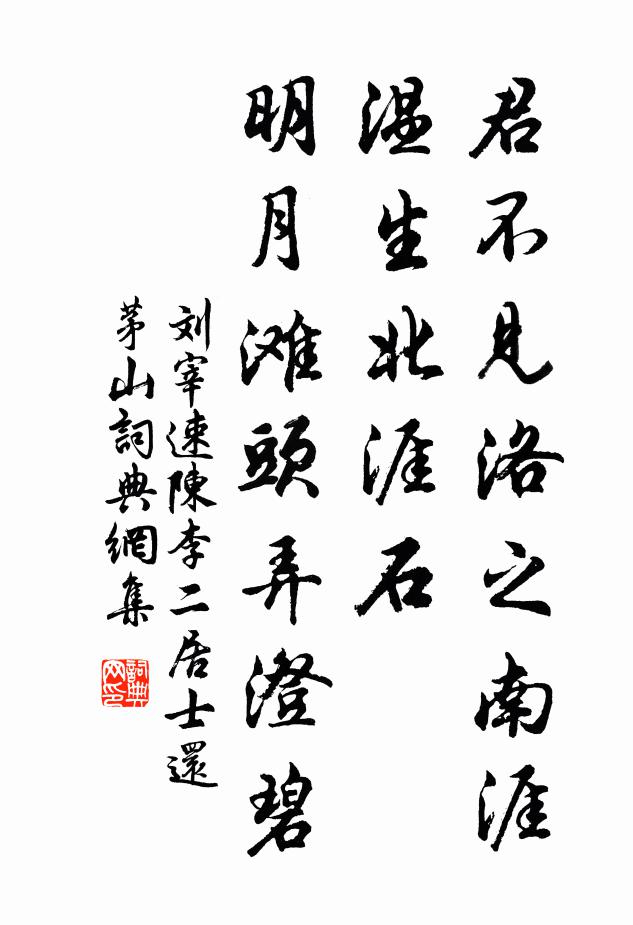 君不見洛之南涯
温生北涯石
明月滩頭弄澄碧
刘宰速陳李二居士還
茅山詞典網集
詞典网印